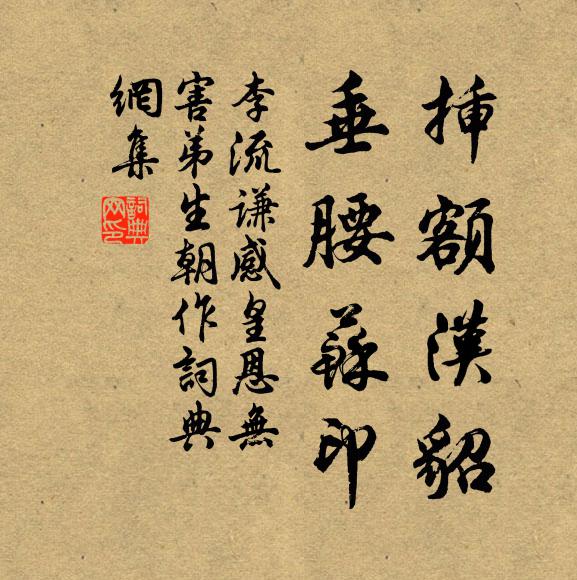 插額漢貂
垂腰蘇印
李流謙感皇恩無
害弟生朝作詞典
網集
詞典網印